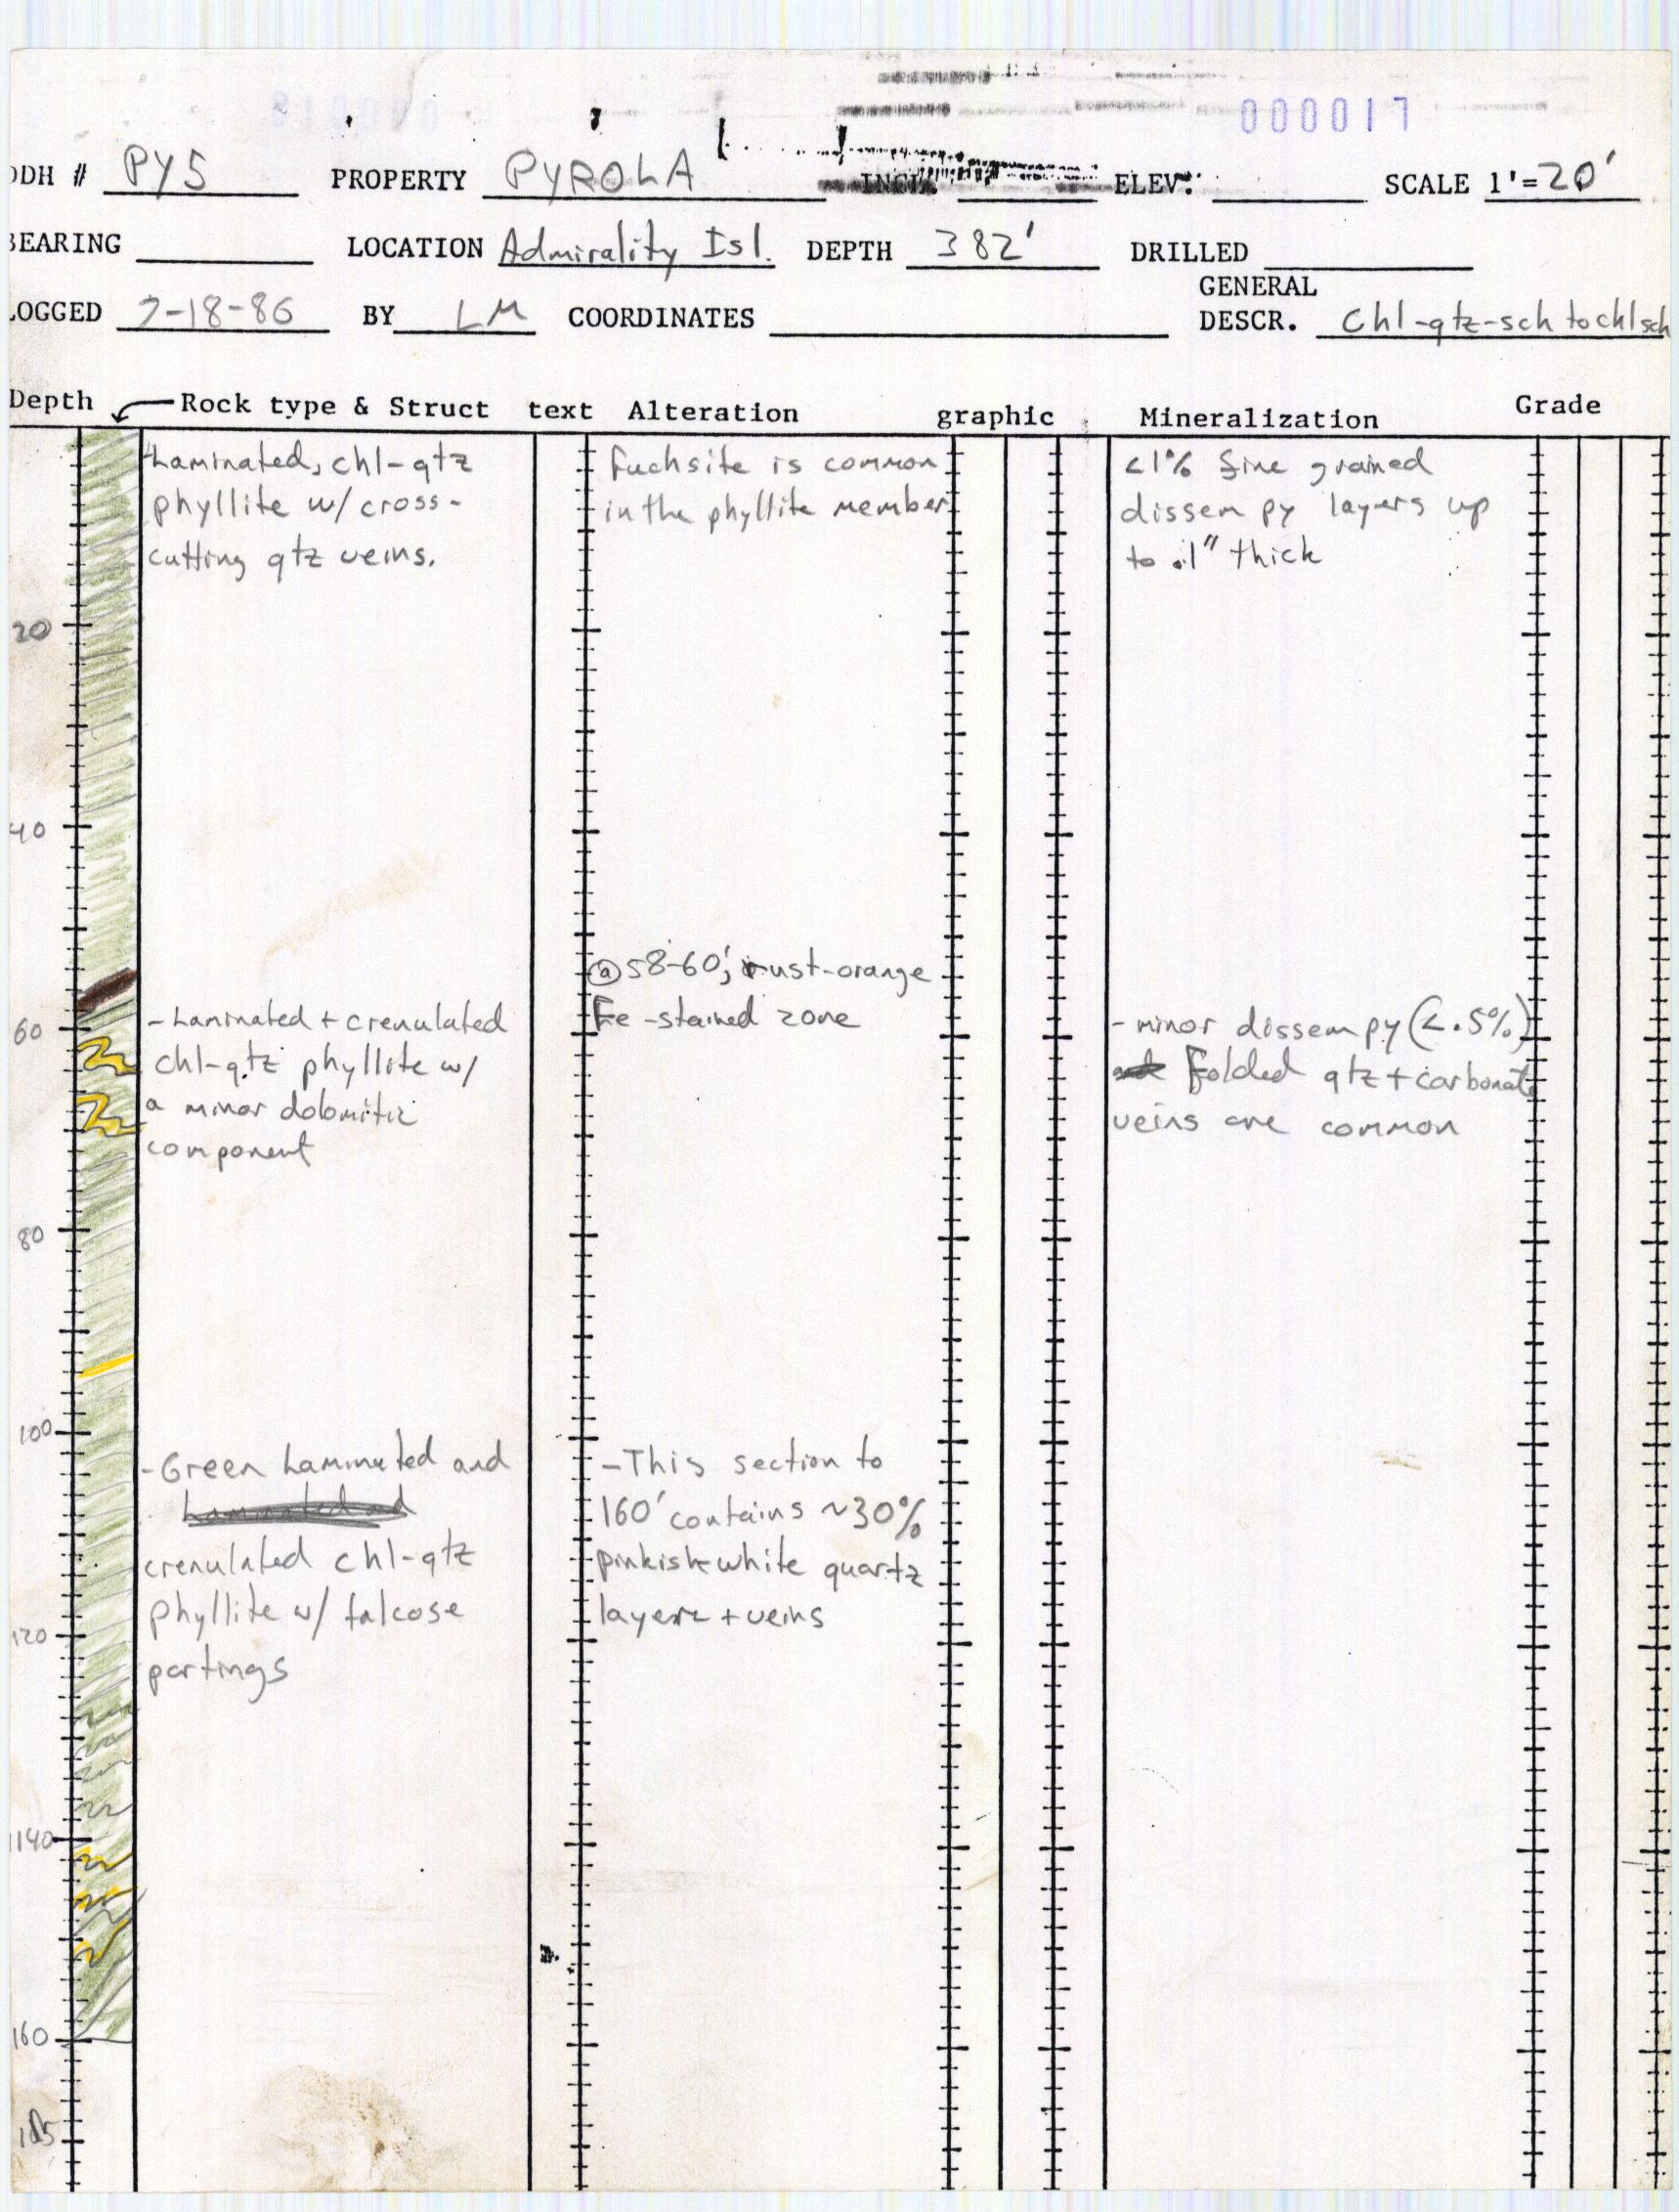 000017
DDH # PY5 PROPERTY PYROLA INCL. ELEV. SCALE 1'=20'
BEARING LOCATION Admirality Isl. DEPTH 382' DRILLED
LOGGED 7-18-86 BY LM COORDINATES GENERAL DESCR. Chl-qtz-sch to chl sch
Depth Rock type & Struct text Alteration graphic Mineralization Grade
Laminated, chl-qtz
phyllite w/ cross-
cutting qtz veins.
fuchsite is common
in the phyllite member
<1% fine grained
dissem py layers up
to .1" thick
20
40
@ 58-60', rust-orange
Fe-stained zone
60
- Laminated + crenulated
chl-qtz phyllite w/
a minor dolomitic
component
- minor dissem py (<.5%)
Folded qtz + carbonate
veins are common
80
100
- Green Laminated and
Laminated and
crenulated chl-qtz
phyllite w/ talcose
partings
- This section to
160' contains ~30%
pinkish-white quartz
layers + veins
120
140
160